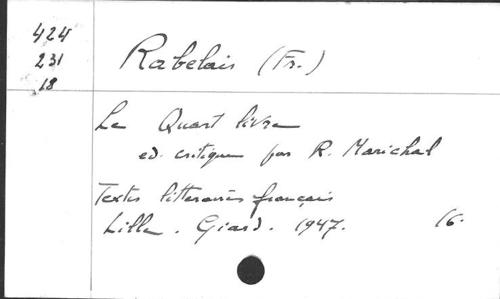 424
231
18
Rabelais (Fr.)
Le Quart livre
ed. critique par R. Marichal
Textes litteraires français
Lille. Giard. 1947. 16.